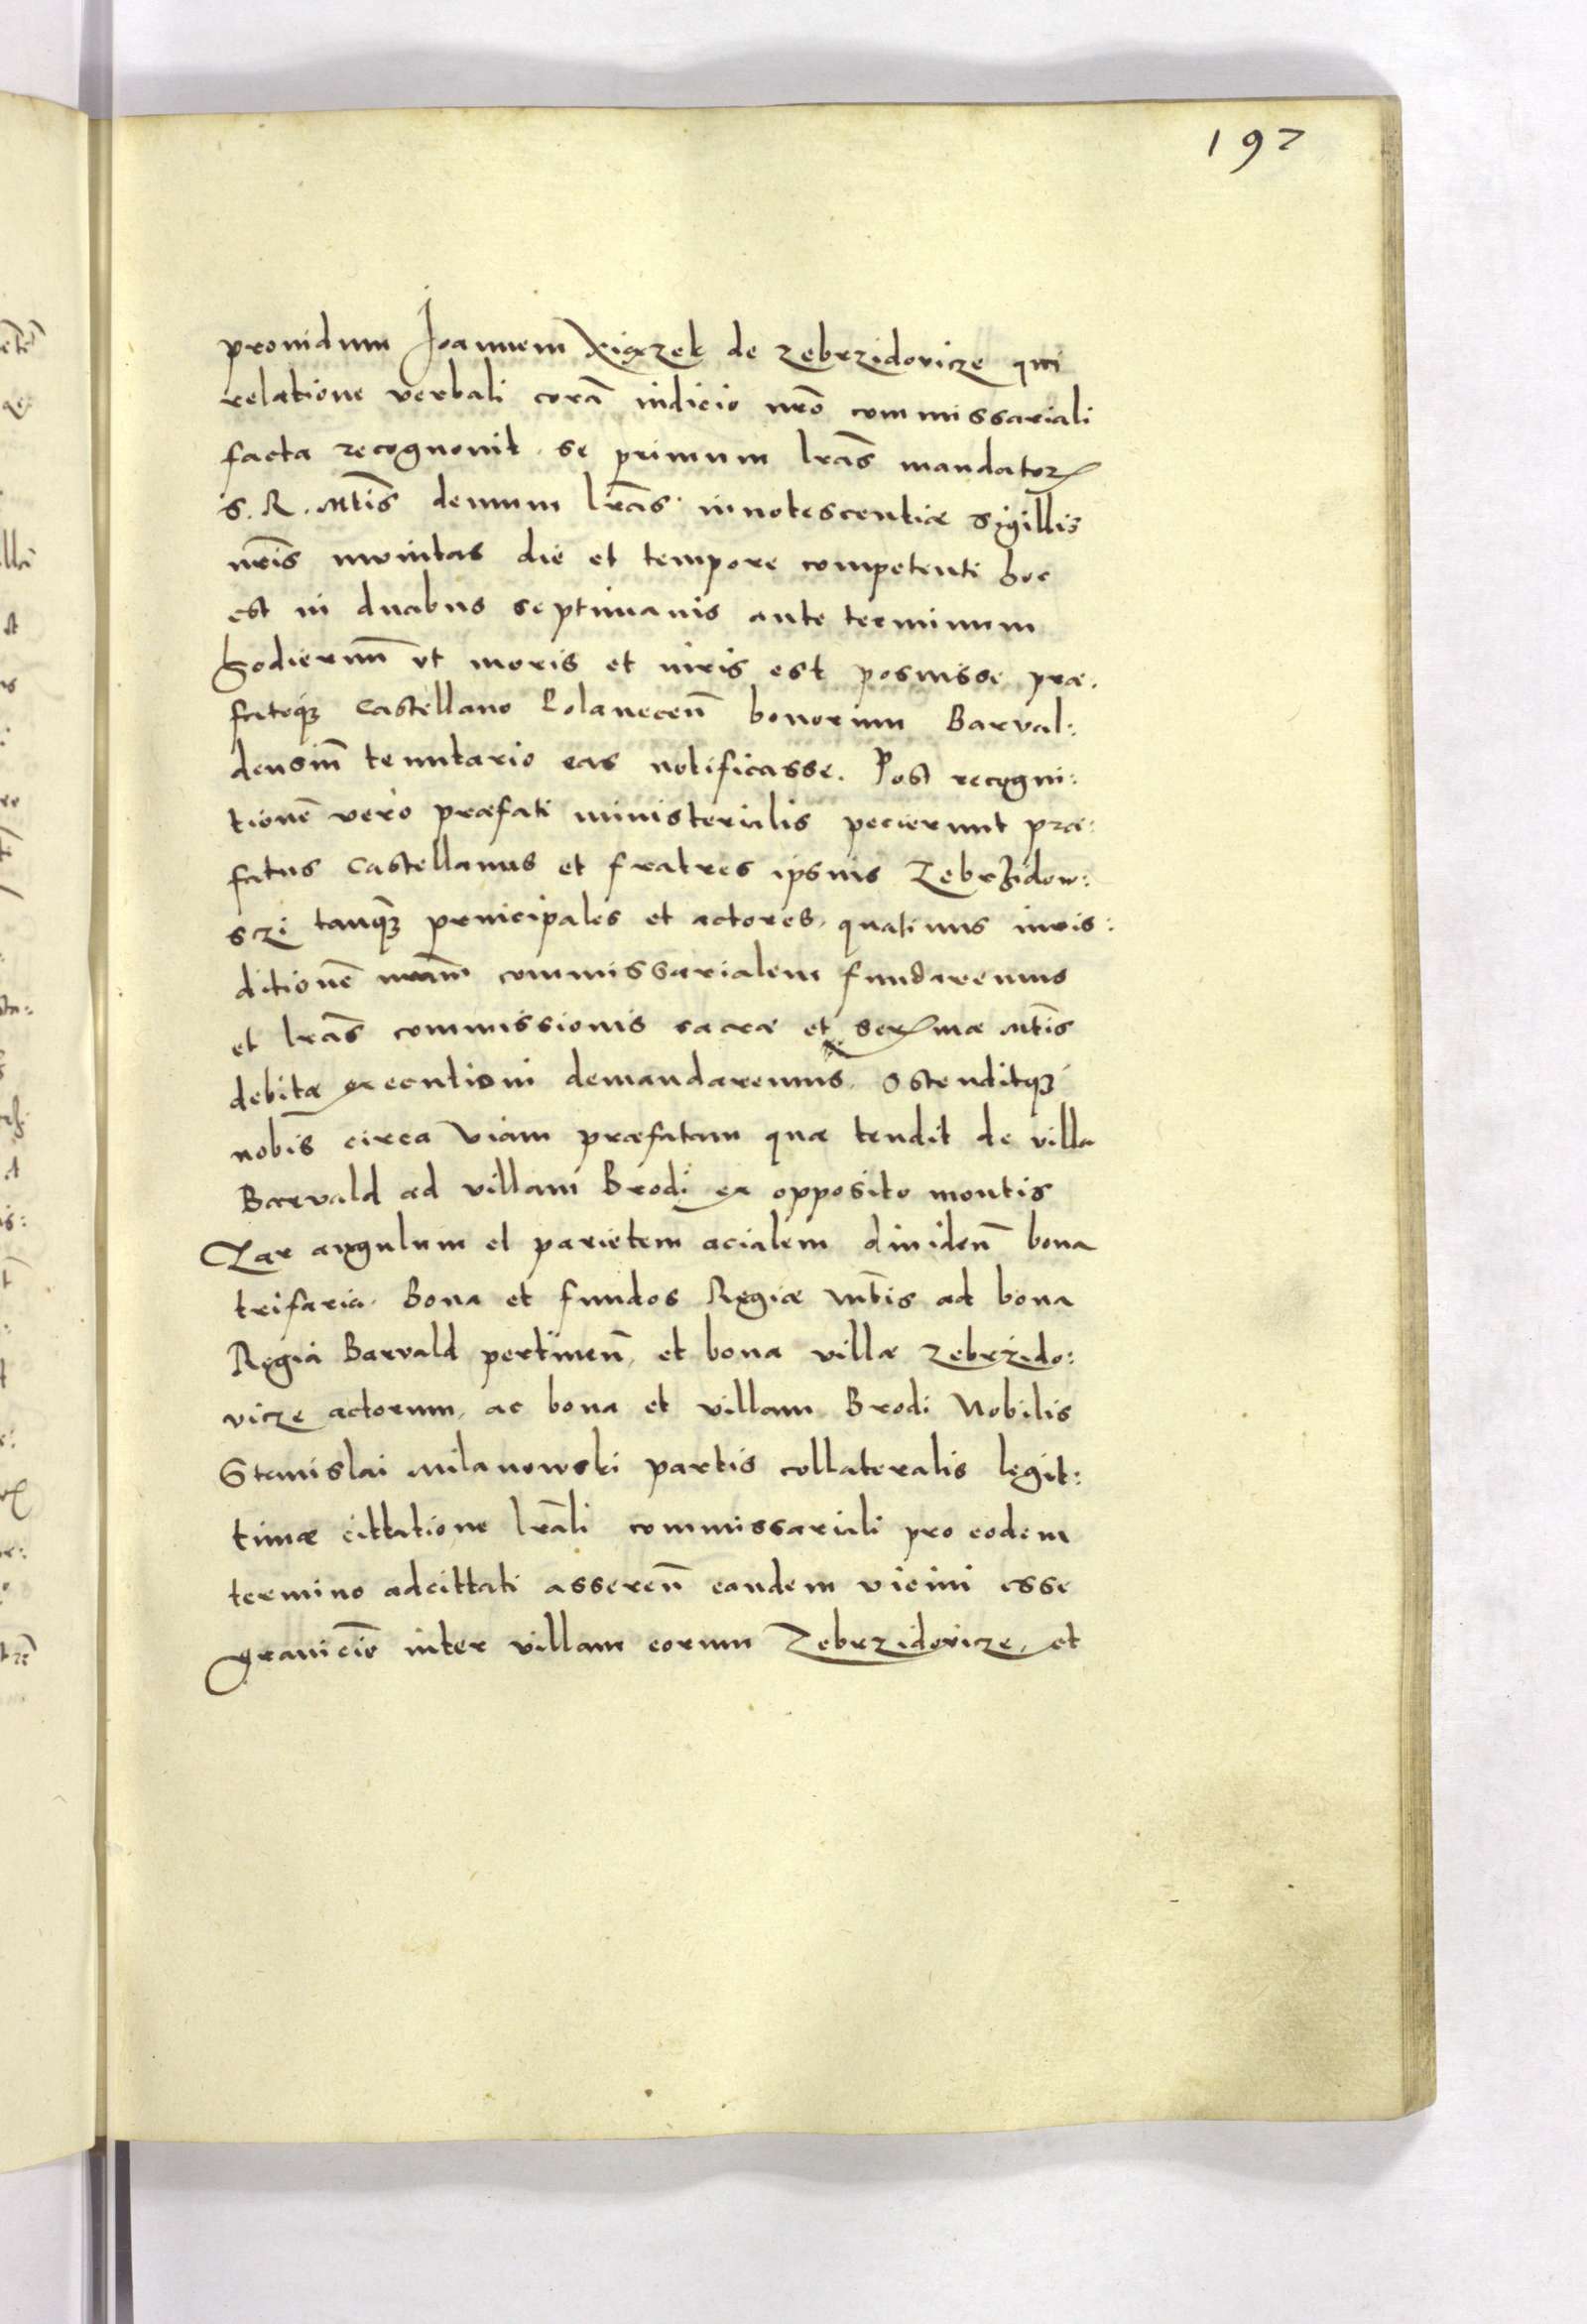 197
prouidum Joannem Xiązek de Zebrzidovicze qui
relatione verbali corā iudicio nrō commissariali
facta recognouit se primum lrās mandatorꝝ
S. R. Mtīs demum lrās innotescentiæ sigillis
nrīs munitas die et tempore competenti hoc
est in duabus septimanis ante terminum
hodiernū vt moris et iuris est posuisse præ.
fatoqꝫ Castellano Polanecen̄ bonorum Barval:
densiū tenutario eas notificasse. Post recogni:
tionē vero præfati ministerialis pecierunt præ:
fatus Castellanus et fratres ipsius Zebrzidow:
sczi tanquā principales et actores, quatinus iuris:
ditionē nram̄ commissarialem fundaremus
et lrās commissionis sacræ et serꝫmæ Mtīs
debitæ executioni demandaremus. Ostenditqꝫ
nobis circa viam præfatam quæ tendit de villa
Barvald ad villam Brodi ex opposito montis
Zar angulum et parietem acialem diuiden̄ bona
trifaria. Bona et fundos Regiæ Mtīs ad bona
Regia Barvald pertinen̄, et bona villæ Zebrzido:
vicze actorum, ac bona et villam Brodi Nobilis
Stanislai Milanowski partis collateralis legit:
timæ cittatione lrāli commissariali pro eodem
termino adcittati asseren̄ eandem vicini esse
graniciē inter villam eorum Zebrzidovicze, et